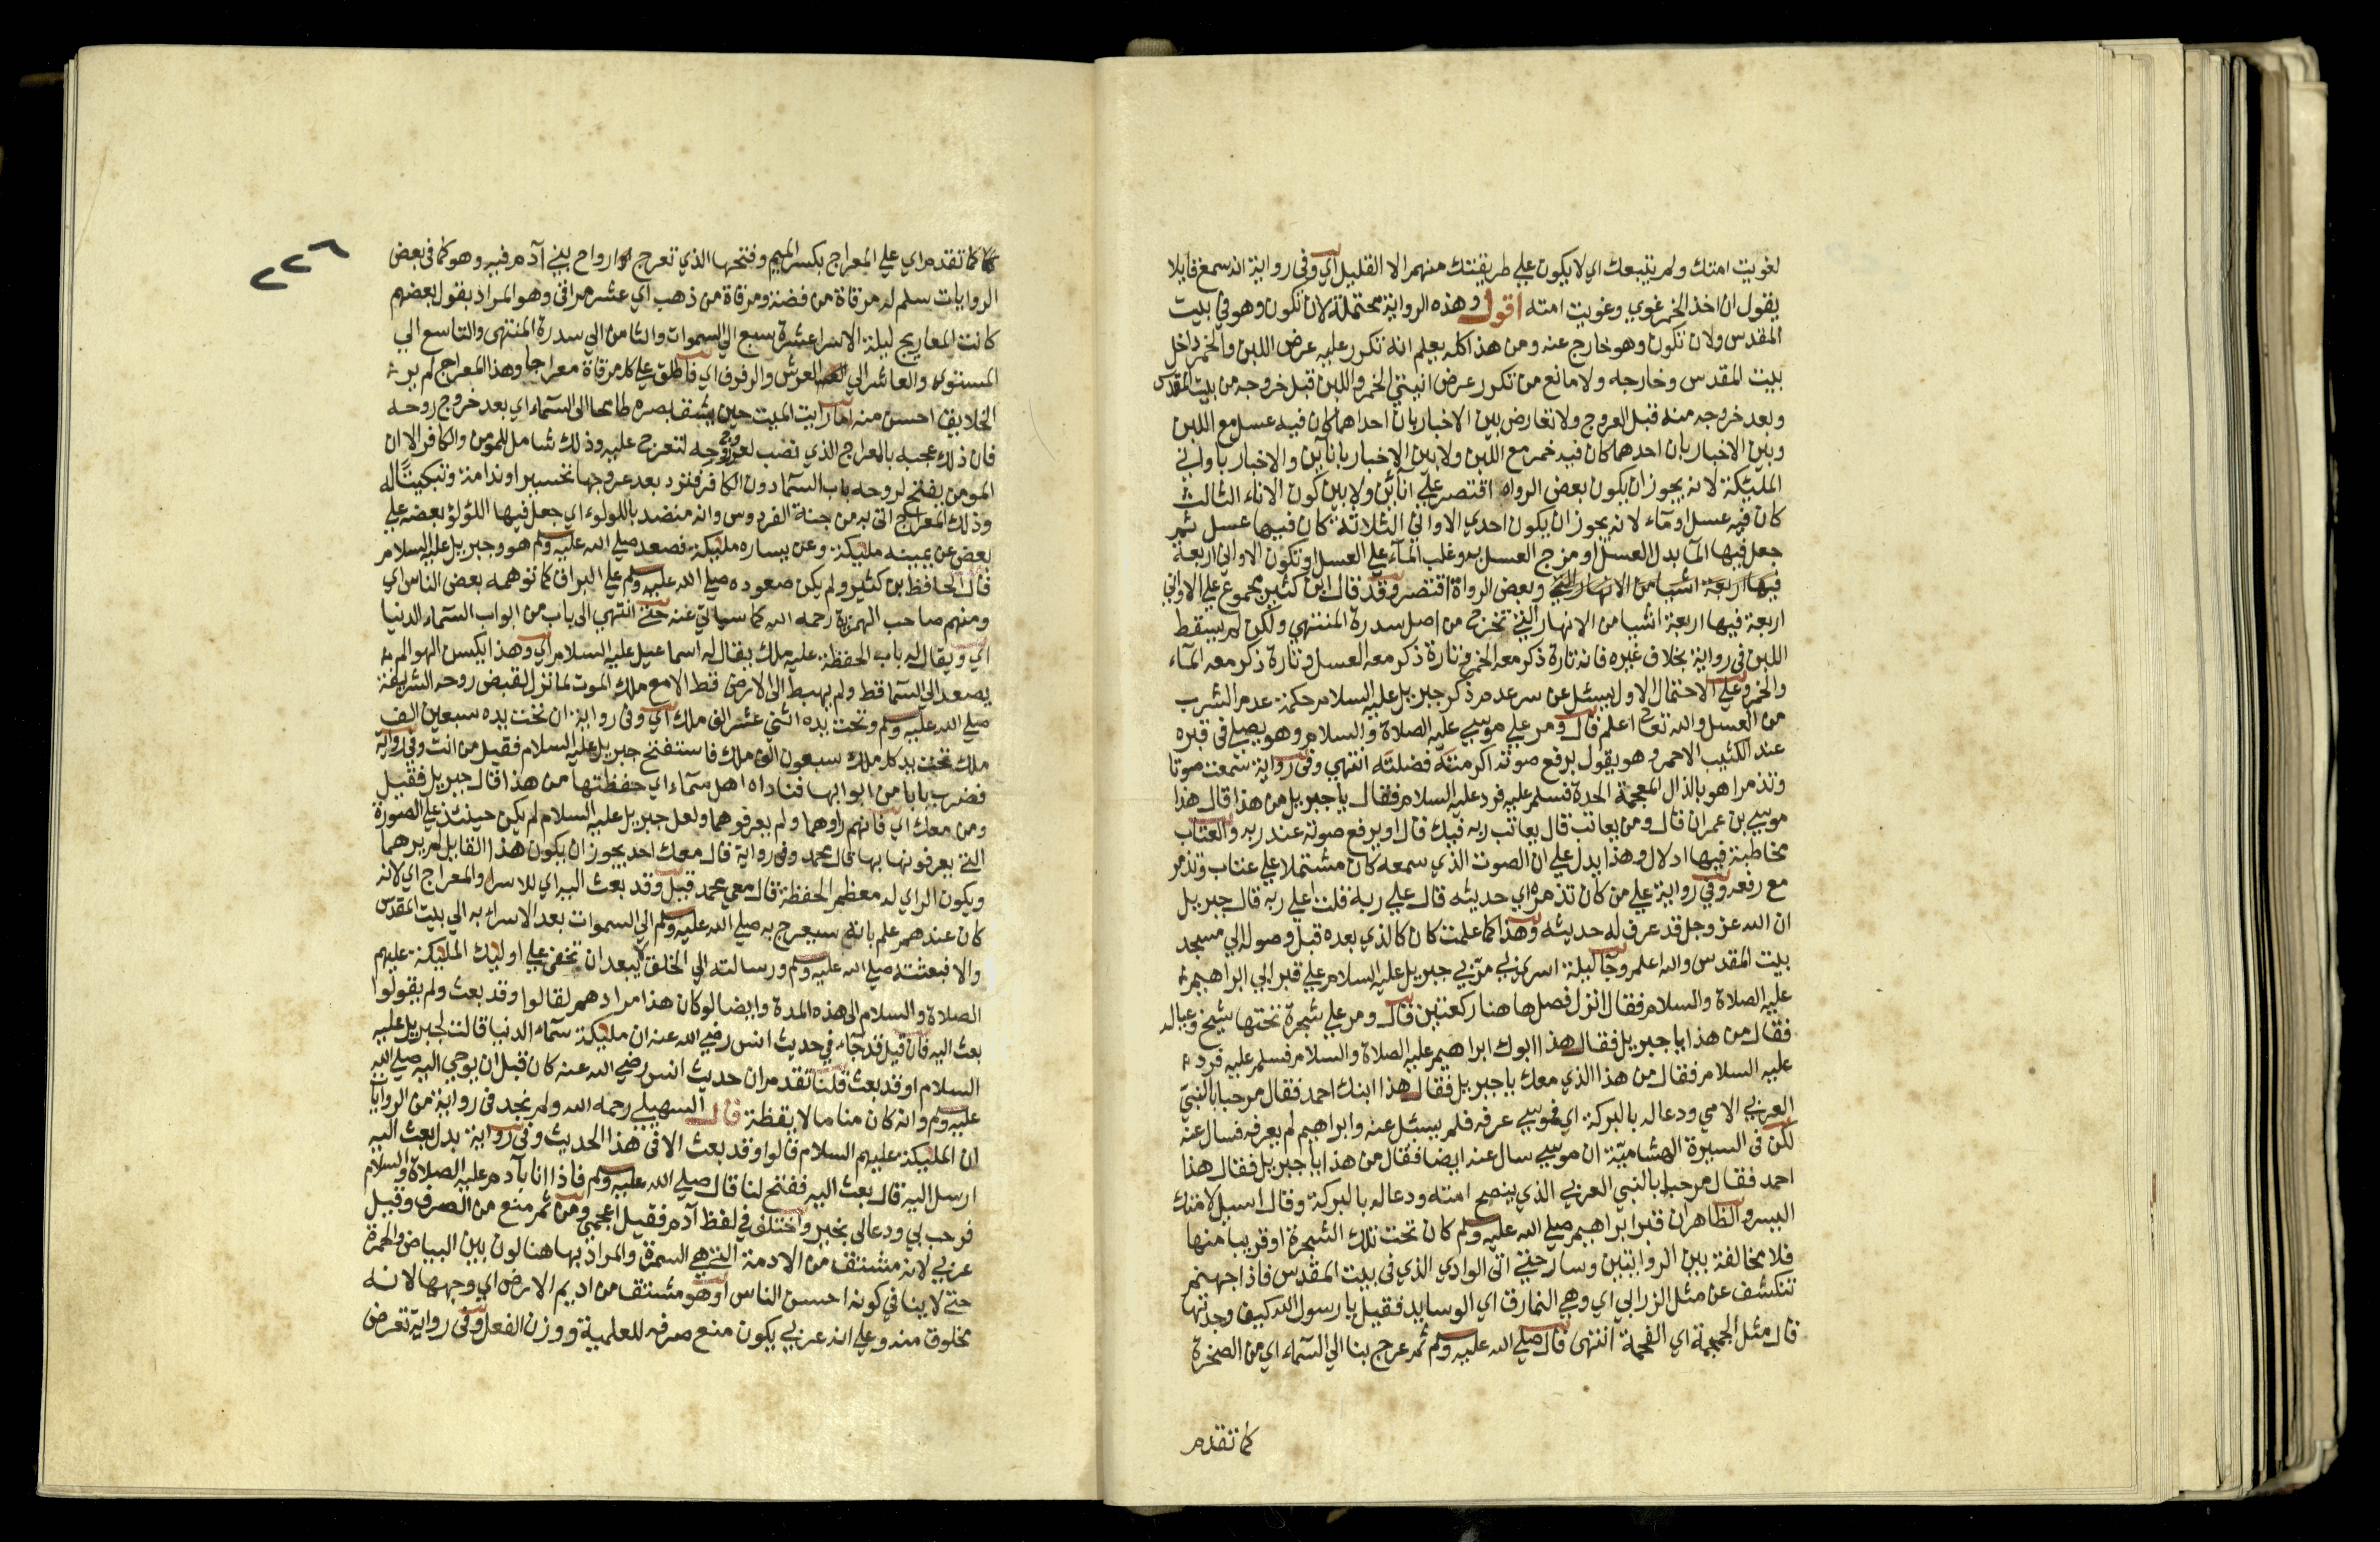 لغويت امتك ولم يتبعك اي لا يكون علي طريقتك منهم الا القليل اي وفي رواية انه سمع قايلا
يقول ان اخذ الخمر غوي وغويت امته اقول وهذه الرواية محتملة لان تكون وهو في بيت
المقدس ولان تكون وهو خارج عنه ومن هذا كله يعلم انه تكرر عليه عرض اللبن والخمر داخل
بيت المقدس وخارجه ولا مانع من تكرر عرض انيتي الخمر واللبن قبل خروجه من بيت المقدس
وبعد خروجه منه قبل العروج ولا تعارض بين الاخبار بان احداهما كان فيه عسل مع اللبن
وبين الاخبار بان احدهما كان فيه خمر مع اللبن ولا بين الاخبار باناآين والاخبار باواني
المليكة لانه يجوز ان يكون بعض الرواه اقتصر علي انآئين ولا بين كون الاناء الثالث
كان فيه عسل او مآء لانه يجوز ان يكون احدي الاواني الثلاثة كان فيها عسل ثم
جعل فيها المآ بدل العسل او مزج العسل به وغلب المآء علي العسل او تكون الاواني اربعة
فيها اربعة اشيا من الانهار التي وبعض الرواة اقتصر وقد قال ابن كثير مجموع علي الاواني
اربعة فيها اربعة اشيا من الانهار التي تخرج من اصل سدرة المنتهي ولكن لم يسقط
اللبن في رواية بخلاف غيره فانه تارة ذكر معه الخمر وتارة ذكر معه العسل وتارة ذكر معه المآء
والخمر وعلي الاحتمال الاول يسئل عن سر عدم ذكر جبريل عليه السلام حكمة عدم الشرب
من العسل والله تعالى اعلم قال ومر علي موسي عليه الصلاة والسلام وهو يصلي في قبره
عند الكثيب الاحمر وهو يقول برفع صوته اكرمته فضلته انتهي وفي رواية سمعت صوتا
وتذمرا هو بالذال المعجمة الحدة فسلم عليه فرد عليه السلام فقال يا جبريل من هذا قال هذا
موسي بن عمران قال ومن يعاتب قال يعاتب ربه فيك قال او يرفع صوته عند ربه والعتاب
مخاطبة فيها ادلال وهذا يدل علي ان الصوت الذي سمعه كان مشتملا علي عتاب وتذمر
مع رفعه وفي رواية علي من كان تذمره اي حديثه قال علي ربه قلت اعلي ربه قال جبريل
ان الله عز وجل قد عرف له حديثه وهذا كما علمت كان كالذي بعده قبل وصوله الي مسجد
بيت المقدس والله اعلم وجآ ليلة اسري بي مر بي جبريل عليه السلام علي قبر ابي ابراهيم
عليه الصلاة والسلام فقال انزل فصل ها هنا ركعتين قال ومر علي شجرة تحتها شيخ وعياله
فقال من هذا يا جبريل فقال هذا ابوك ابراهيم عليه الصلاة والسلام فسلم عليه فرد
عليه السلام فقال من هذا الذي معك يا جبريل فقال هذا ابنك احمد فقال مرحبا بالنبي
العربي الامي ودعا له بالبركة اي فموسي عرفه فلم يسئل عنه وابراهيم لم يعرفه فسال عنه
لكن في السيرة الهشامية ان موسي سال عنه ايضا فقال من هذا يا جبريل فقال هذا
احمد فقال مرحبا بالنبي العربي الذي ينصح امته ودعا له بالبركة وقال اسيل لامتك
اليسر والظاهر ان قبر ابراهيم صلي الله عليه وسلم كان تحت تلك الشجرة او قريبا منها
فلا مخالفة بين الروايتين وسار حتي اتي الوادي الذي في بيت المقدس فاذا جهنم
تنكشف عن مثل الزرابي اي وهي النمارق اي الوسايد فقيل يا رسول الله كيف وجدتها
قال مثل الجمجمة اي الفحمة انتهى قال صلي الله عليه وسلم ثم عرج بنا الي السمآء اي من الصخرة
كما تقدم
٢٢٦
كما تقدم اي علي المعراج بكسر الميم وفتحها الذي تعرج ارواح بني آدم فيه وهو كما في بعض
الروايات سلم له مرقاة من فضة ومرقاة من ذهب اي عشر مراقي وهو المراد بقول بعضهم
كانت المعاريج ليلة الاسرا عشرة سبع الي السموات والثامن الي سدرة المنتهى والتاسع الي
المستوى والعاشر الي العرش والرفرف اي فاطلق علي كل مرقاة معراجا وهذا المعراج لم ير
الخلايق احسن منه اما رايت الميت حين يشق بصره طامحا الى السمآء اي بعد خروج روحه
فان ذلك عجبه بالمعراج الذي نصب لعروج روحه لتعرج عليه وذلك شامل للمومن والكافر الا ان
المومن يفتح لروحه باب السمآ دون الكافر فترد بعد عروجها تحسيرا وندامة وتبكيتا له
وذلك المعراج اتي به من جنة الفردوس وانه منضد باللولوء اي جعل فيها اللؤلؤ بعضه علي
بعض عن يمينه مليكة وعن يساره مليكة فصعد صلي الله عليه وسلم هو وجبريل عليه السلام
قال الحافظ بن كثير ولم يكن صعوده صلي الله عليه وسلم علي البراق كما توهمه بعض الناس اي
ومنهم صاحب الهمزية رحمه الله كما سياتي عنه حتي انتهي الى باب من ابواب السمآء الدنيا
اي ويقال له باب الحفظة عليه ملك يقال له اسماعيل عليه السلام اي وهذا يكسن الهوا لم
يصعد الي السما قط ولم يهبط الى الارض قط الا مع ملك الموت لما نزل لقبض روحه الشريفة
صلي الله عليه وسلم وتحت يده اثني عشر الف ملك اي وفي رواية ان تحت يده سبعين الف
ملك تحت يد كل ملك سبعون الف ملك فاستفتح جبريل عليه السلام فقيل من انت وفي رواية
فضرب بابا من ابوابها فناداه اهل سمآء اي حفظتها من هذا قال جبريل فقيل
ومن معك اي فانهم راوهما ولم يعرفوهما ولعل جبريل عليه السلام لم يكن حينئذ علي الصورة
التي يعرفونها بها قال محمد وفي رواية قال معك احد يجوز ان يكون هذا القايل لم يرهما
ويكون الراي له معظم الحفظة قال معي محمد قيل وقد بعث اليه اي للاسرا والمعراج اي لانه
كان عندهم علم بانه سيعرج به صلي الله عليه وسلم الي السموات بعد الاسراء به الي بيت المقدس
والا فبعثته صلي الله عليه وسلم ورسالته الي الخلق يبعد ان تخفي علي اوليك المليكة عليهم
الصلاة والسلام الى هذه المدة وايضا لو كان هذا مرادهم لقالوا وقد بعث ولم يقولوا
بعث اليه فان قيل قد جآء في حديث انس رضي الله عنه ان مليكة سمآء الدنيا قالت لجبريل عليه
السلام او قد بعث قلنا تقدم ان حديث انس رضي الله عنه كان قبل ان يوحي اليه صلي الله
عليه وسلم وانه كان مناما لا يقظة قال السهيلي رحمه الله ولم نجد في رواية من الروايات
ان المليكة عليهم السلام قالوا وقد بعث الا في هذا الحديث وفي رواية بدل بعث اليه
ارسل اليه قال بعث اليه ففتح لنا قال صلي الله عليه وسلم فاذا انا بآدم عليه الصلاة والسلام
فرحب بي ودعا لي بخير واختلف في لفظ آدم فقيل اعجمي ومن ثم منع من الصرف وقيل
عربي لانه مشتق من الادمة التي هي السمرة والمراد بها هنا لون بين البياض والحمرة
حتي لا ينافي كونه احسن الناس او هو مشتقا من اديم الارض اي وجهها لانه
مخلوق منه وعلي انه عربي يكون منع صرفه للعلمية ووزن الفعل وفي رواية تعرض